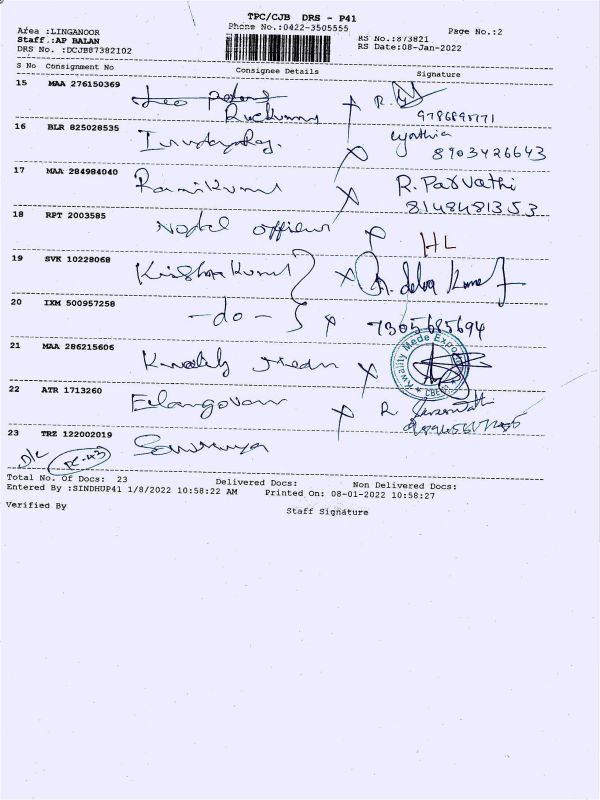 TPC/CJB DRS - P41
Phone No.:0422-3505555
Page No.:2
Area :LINGANOOR
Staff.:AP BALAN
DRS No. :DCJB87382102
RS No.:873821
RS Date:08-Jan-2022
S No Consignment No Consignee Details Signature
15 MAA 276150369
9786895771
16 BLR 825028535 Cynthia
8903426643
17 MAA 284984040 Ramkumar R. Parvathi
8148481353
18 RPT 2003585 Nodal officer HL
19 SVK 10228068 Krishnakumar
20 IXM 500957258 - do - 7305685694
21 MAA 286215606 Kwality Mede
Kwality Mede Exports * CBE
22 ATR 1713260 Elangovan R. Saraswathi
23 TRZ 122002019 Sowmya
D/L
Total No. Of Docs: 23 Delivered Docs: Non Delivered Docs:
Entered By :SINDHUP41 1/8/2022 10:58:22 AM Printed On: 08-01-2022 10:58:27
Verified By Staff Signature